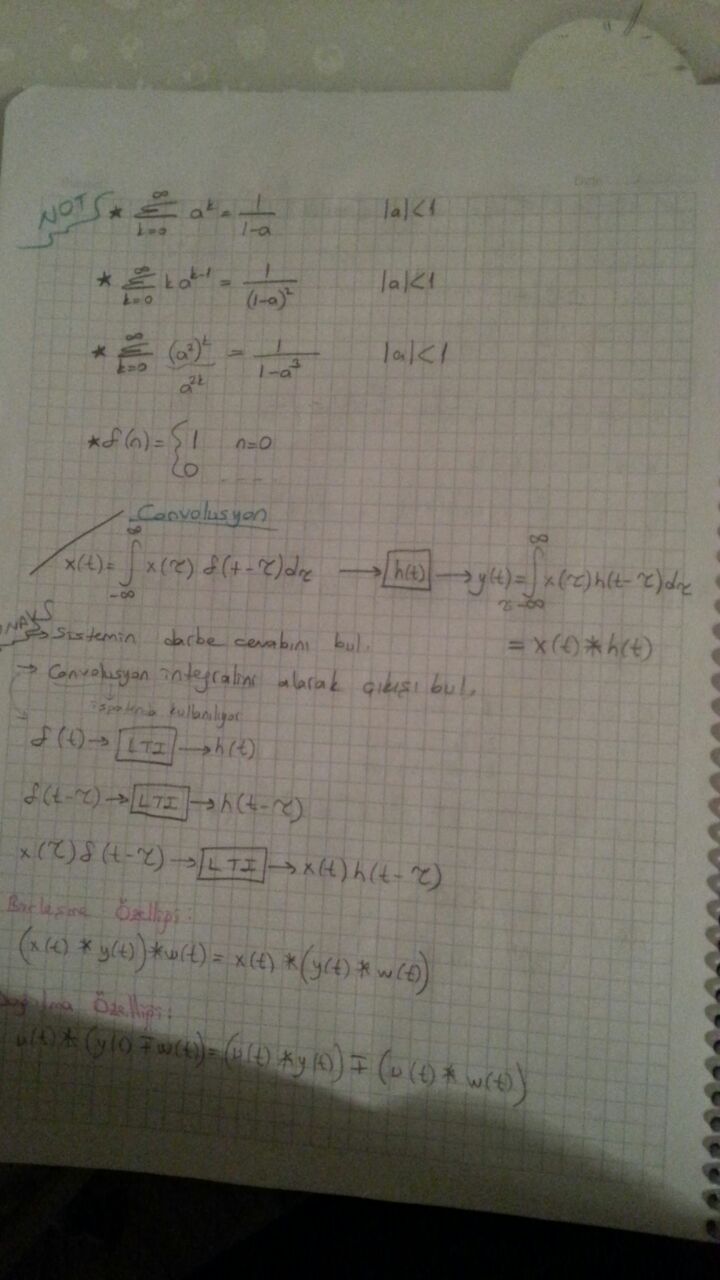 NOT
* ∞∑k=0 a^k = 1/(1-a) |a|<1
* ∞∑k=0 k a^(k-1) = 1/(1-a)^2 |a|<1
* ∞∑k=0 (a^2)^k = 1/(1-a^3) |a|<1
a^2k
* δ(n) = { 1 n=0
0 ----
Convolusyon
x(t) = ∫-∞^∞ x(τ) δ(t-τ)dτ → h(t) → y(t) = ∫τ=-∞^∞ x(τ)h(t-τ)dτ
= x(t)*h(t)
→ Sistemin darbe cevabını bul.
→ Convolusyon integralini alarak çıkışı bul.
ispatında kullanılıyor
δ(t) → LTI → h(t)
δ(t-τ) → LTI → h(t-τ)
x(τ)δ(t-τ) → LTI → x(t)h(t-τ)
Birleşme Özelliği:
(x(t) * y(t)) * w(t) = x(t) * (y(t) * w(t))
Dağılma Özelliği:
u(t) * (y(t) ∓ w(t)) = (u(t) * y(t)) ∓ (u(t) * w(t))